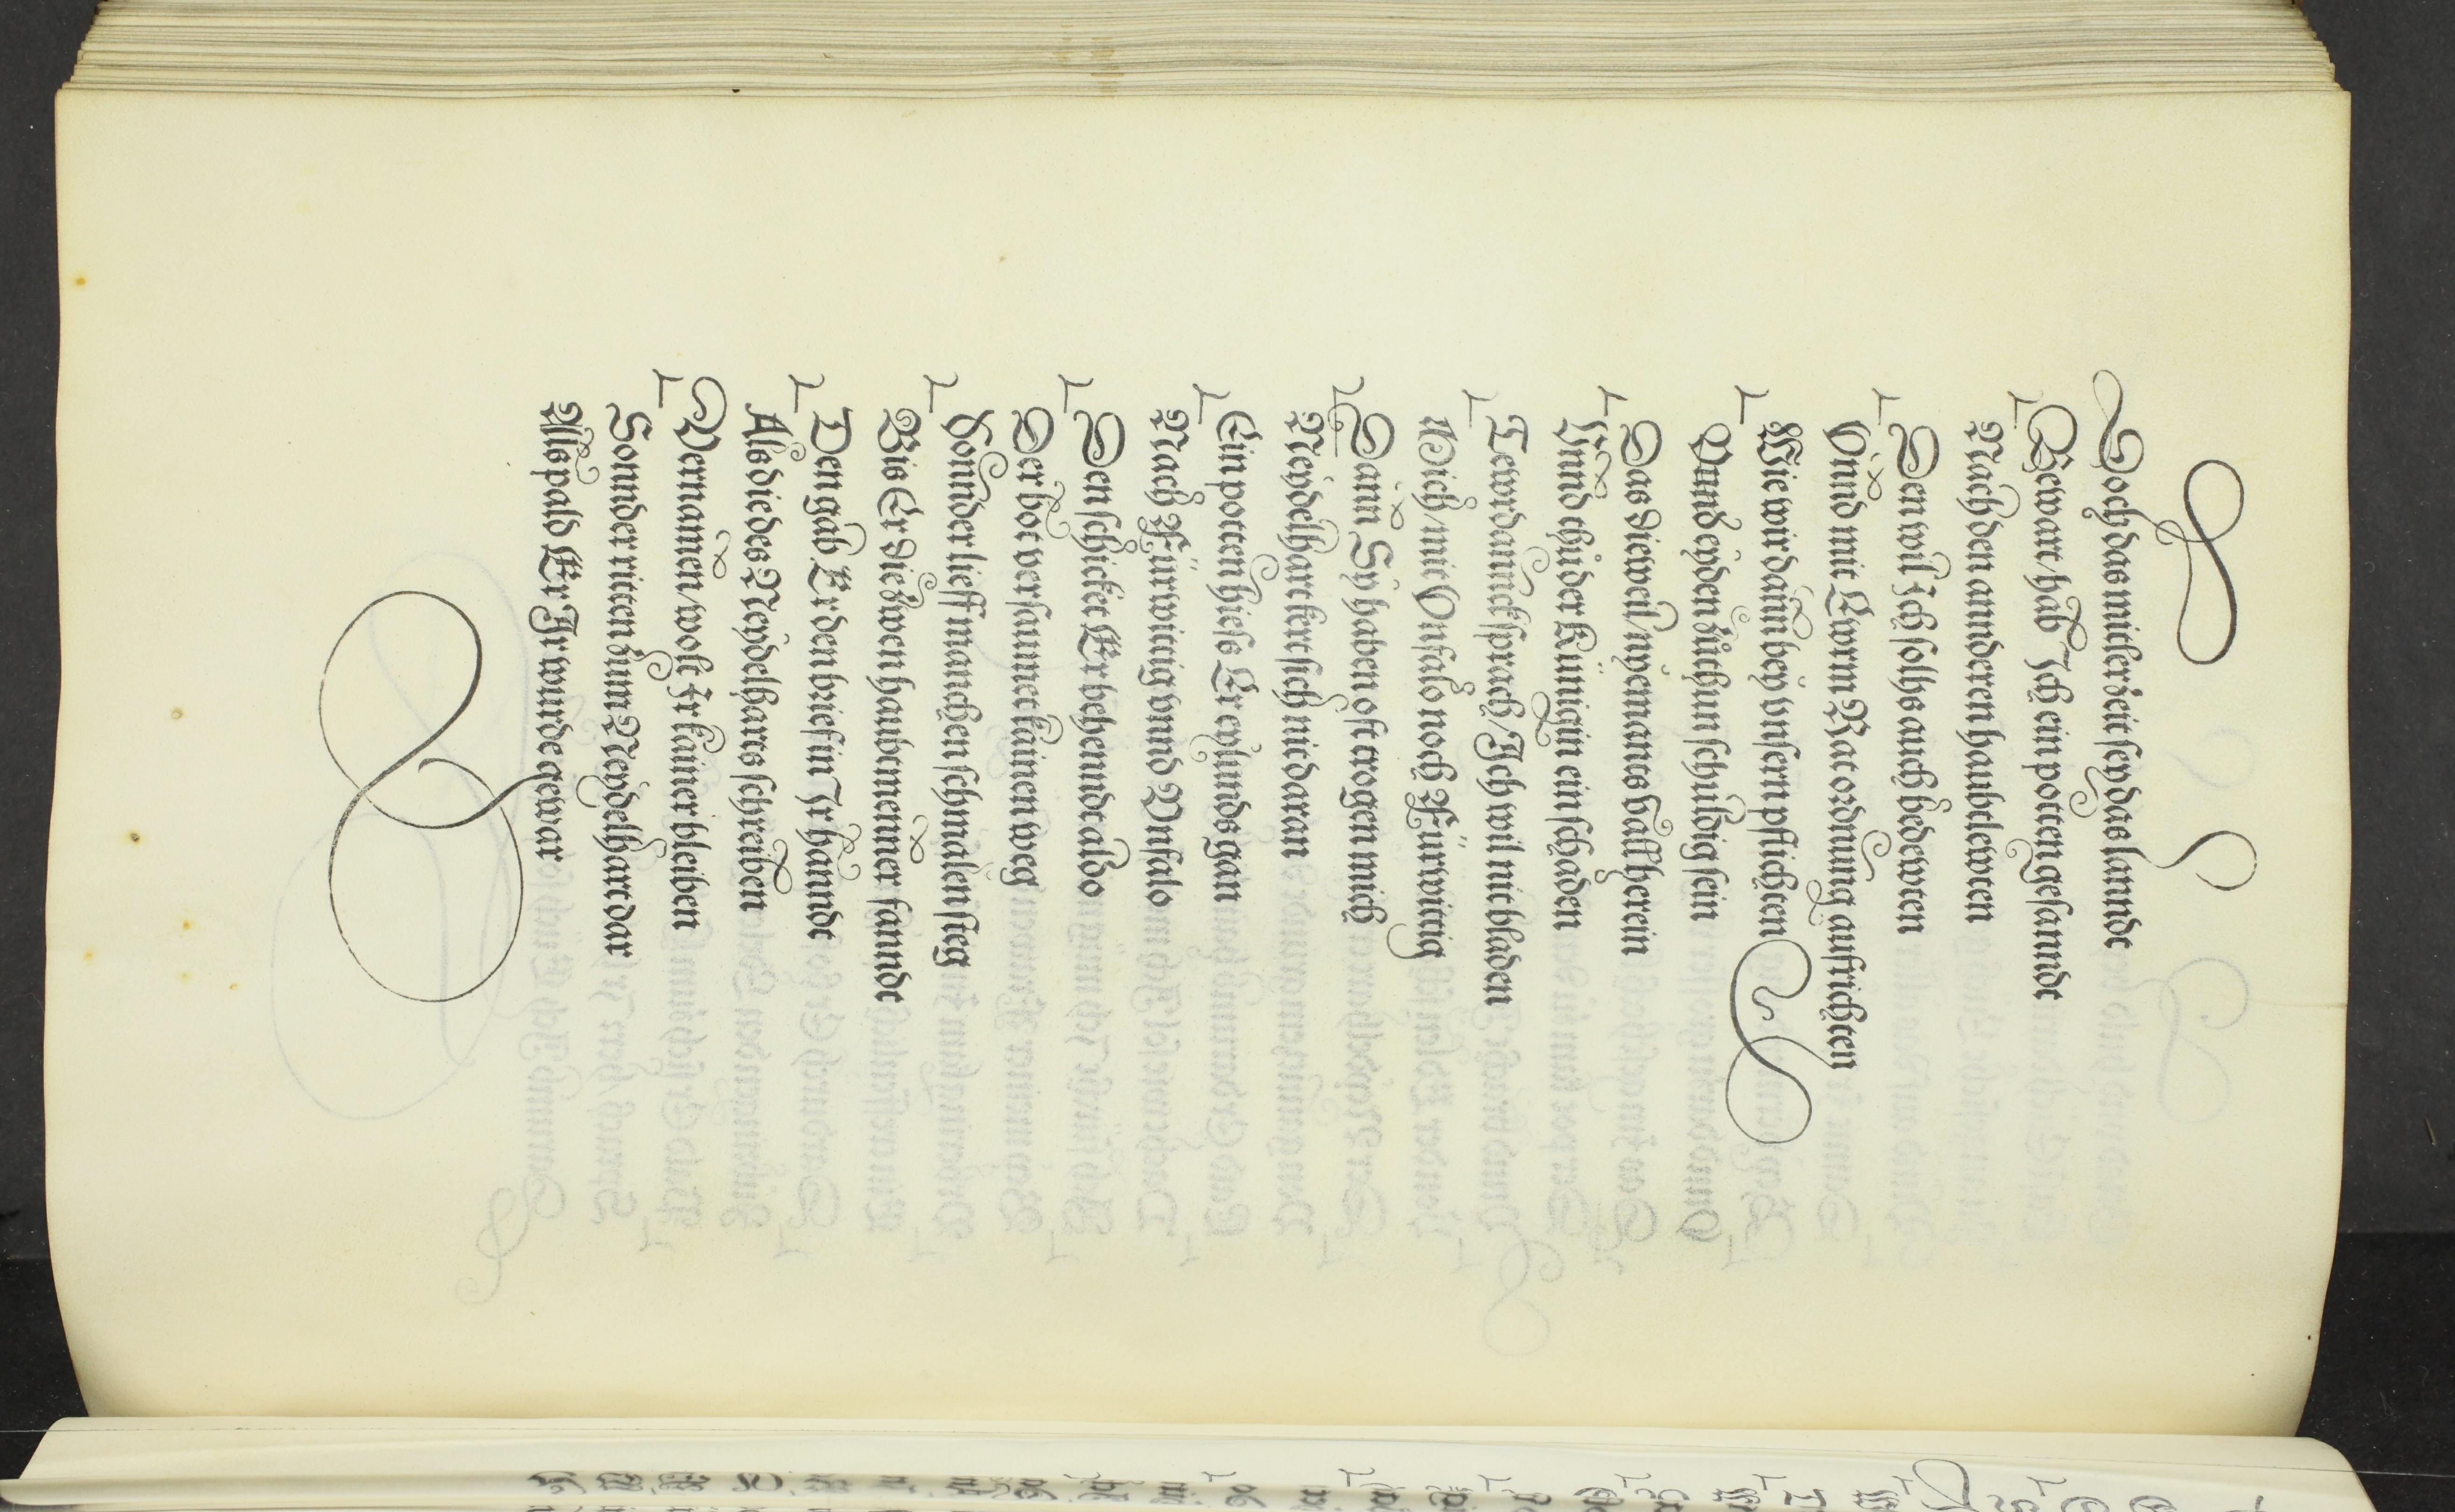 Doch das mitlerzeit sey das lanndt
Bewart / hab Ich ein potten gesanndt
Nach den annderen haubtlewten
Den wil Ich solhs auch bedewten
Vnnd mit Ewrm Rat ordnung aufrichten
Wie wir dann bey vnsern pflichten
Vnnd eyden zůthun schuldig sein
Das dieweil nyemants hallt herein
Vnnd thů der Künigin ein schaden
Tewrdannckh sprach / Ich wil nit bladen
Mich / mit Vnfalo noch Fürwittig
Dann Sy haben oft trogen mich
Neydelhart kert sich nit daran
Ein potten hiess Er eylunds gan
Nach Fürwittig vnnd Vnfalo
Den schicket Er behenndt aldo
Der bot versaumet kainen weg
Sonnder lieff manchen schmalen steg
Bis Er die zwen haubtmenner fanndt
Den gab Er den brief in Ir hanndt
Als die des Neydelharts schreiben
Vernamen / wolt Ir kainer bleiben
Sonnder ritten zum Neydelhart dar
Alspald Er Ir wurde gewar